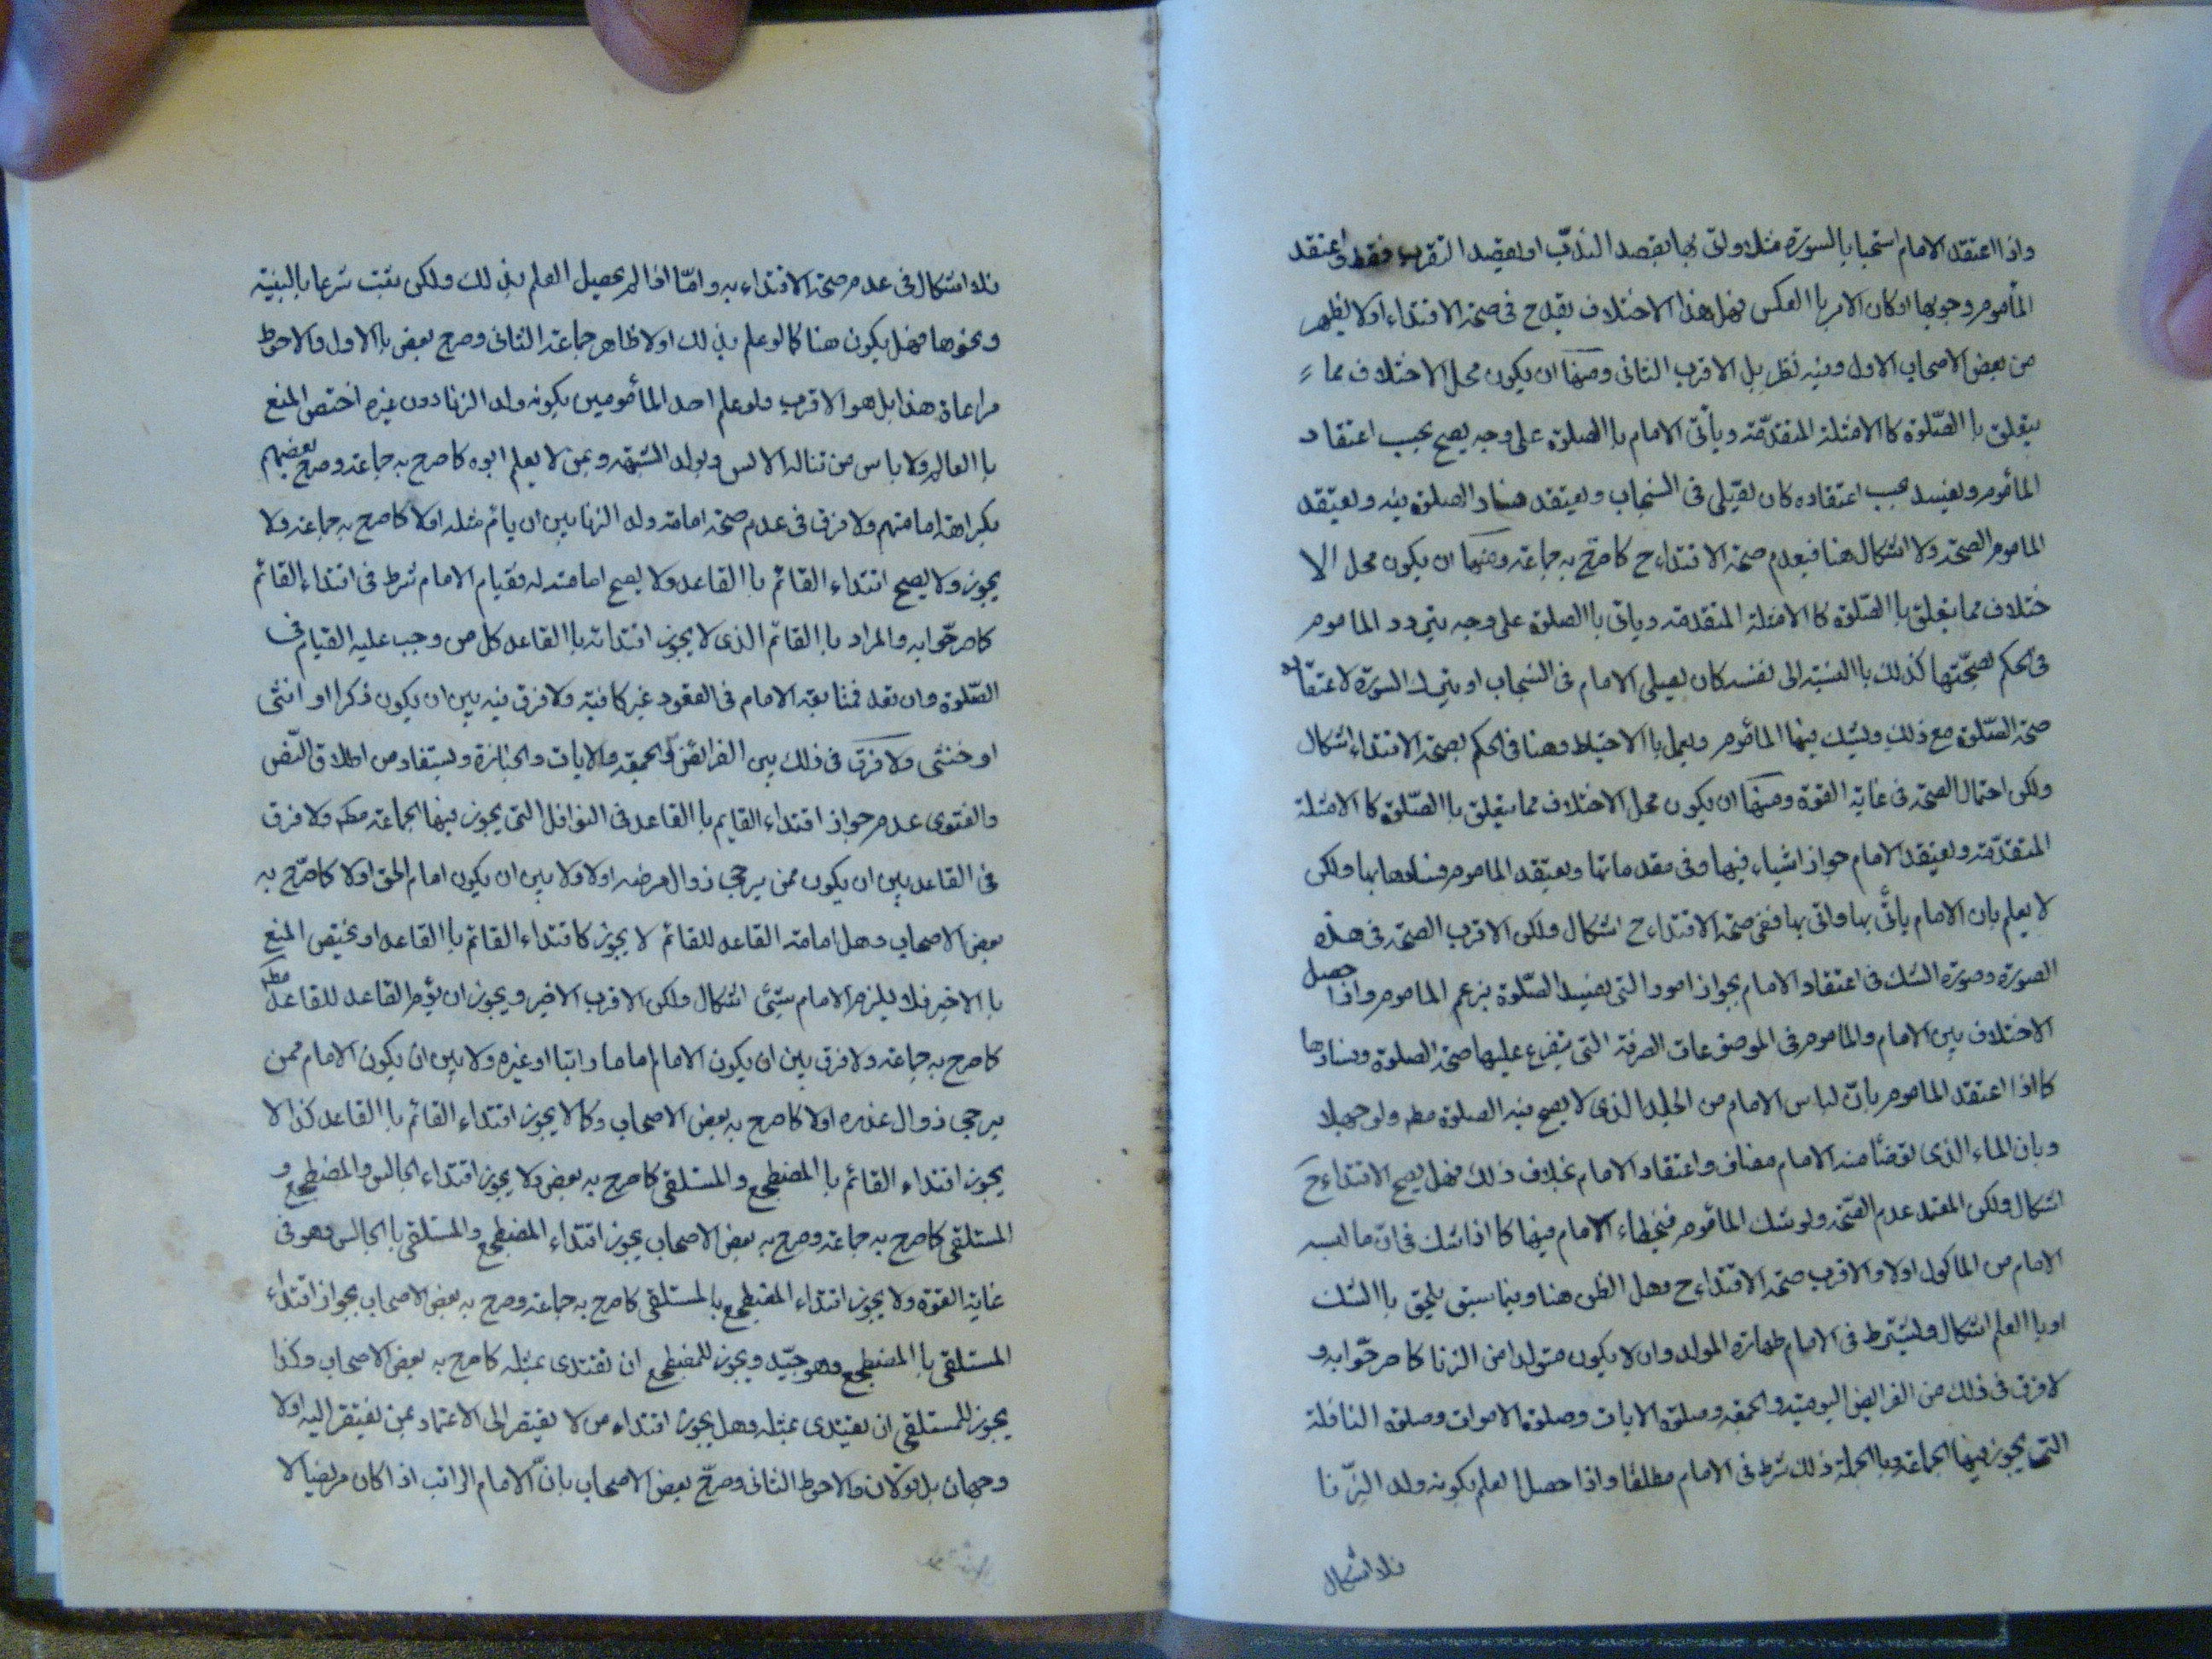 واذا اعتقد الامام استحبابا السورة مثلا واتى بها بقصد الندب او بقصد التقرب فقط واعتقد
المأموم وجوبها او كان الامر با العكس فهل هذا الاختلاف يقدح فى صحة الاقتداء اولا يظهر
من بعض الاصحاب الاول وفيه نظر بل الاقرب الثانى ومنها ان يكون محل الاختلاف مما
يتعلق با الصّلوة كا الامثلة المتقدّمة ويأتى الامام با الصلوة على وجه يصح بحسب اعتقاد
المأموم ويفسد بحسب اعتقاده كان يصّلى فى السنجاب ويعتقد فساد الصلوة فيه ويعتقد
الماموم الصحة ولا اشكال هنا فبعدم صحة الاقتداء ح كا صرّح به جماعة ومنها ان يكون محل الا
ختلاف مما يتعلق با الصّلوة كا الامثلة المتقدمة وياتى با الصلوة على وجه يتردد الماموم
فى الحكم بصحّتها كذلك با النسبة الى نفسه كان يصلى الامام فى السنجاب او يترك السورة لاعتقاده
صحة الصّلوة مع ذلك ويشك فيها المأموم ويعمل با الاحتياط وهنا فى الحكم بصحة الاقتداء اشكال
ولكن احتمال الصحة فى غاية القوة ومنها ان يكون محل الاختلاف مما يتعلق با الصّلوة كا الامثلة
المتقدّمة ويعتقد الامام جواز اشياء فيها وفى مقدماتها ويعتقد الماموم فسادها بها ولكن
لا يعلم بان الامام يأتى بها واتى بها ففى صحة الاقتداء ح اشكال ولكن الاقرب الصحة فى هذه
الصورة وصورة الشك فى اعتقاد الامام بجواز امور التى يفسد الصّلوة بزعم الماموم واذا حصل
الاختلاف بين الامام والماموم فى الموضوعات الصرفة التى يتفرع عليها صحة الصلوة وفسادها
كا اذا اعتقد الماموم بانّ لباس الامام من الجلد الذى لا يصح فيه الصلوة مطه ولو جهلا
وبان الماء الذى توضأ منه الامام مضاف واعتقاد الامام بخلاف ذلك فهل يصح الاقتداء ح
اشكال ولكن المعتمد عدم الصّحة ولو شك المأموم فى خطاء الامام فيها كا اذا شك فى انّ ما لبسه
الامام من الماكول اولا والاقرب صحة الاقتداء ح وهل الظن هنا وفيما سبق يلحق با الشك
او با العلم اشكال ويشترط فى الامام طهارة المولد وان لا يكون متولدا من الزنا كا صرّحوا به و
لا فرق فى ذلك من الفرايض اليومية والجمعة وصلوة الايات وصلوة الاموات وصلوة النافلة
التى يجوز فيها الجماعة وبا الجملة ذلك شرط فى الامام مطلقا واذا حصل العلم بكونه ولد الزّنا
فلا اشكال
فلا اشكال فى عدم صحة الاقتداء به وامّا اذا لم يحصل العلم بذلك ولكن يثبت شرعا بالبينة
ونحوها فهل يكون هنا كا لو علم بذلك اولا ظاهر جماعة الثانى وصرح بعض با الاول والاحوط
مراعاة هذا بل هو الاقرب ولو علم احد المأمومين بكونه ولد الزنا دون غيره اختص المنع
با العالم ولا باس من تناله الالسن وبولد الشبهة وبمن لا يعلم ابوه كا صرح به جماعة وصرح بعضهم
بكراهة امامتهم ولا فرق فى عدم صحة امامة ولد الزنا بين ان يأتم مثله اولا كا صرح به جماعة ولا
يجوز ولا يصح اقتداء القائم با القاعد ولا يصح امامته له فقيام الامام شرط فى اقتداء القائم
كا صرّحوا به والمراد با القائم الذى لا يجوز اقتدائه با القاعد كل من وجب عليه القيام فى
الصّلوة وان تعد فمتابعة الامام فى القعود غير كافية ولا فرق فيه بين ان يكون ذكرا او انثى
او خنثى ولا فرق فى ذلك بين الفرائض والجمعة والايات والجنازة ويستفاد من اطلاق النّص
والفتوى عدم جواز اقتداء القايم با القاعد فى النوافل التى يجوز فيها الجماعة مطه ولا فرق
فى القاعد بين ان يكون ممن يرجى زوال مرضه اولا ولا بين ان يكون امام الحى اولا كا صرّح به
بعض الاصحاب وهل امامة القاعد للقائم لا يجوز كا اقتداء القائم با القاعد او يختص المنع
با الاخير فلا يلزم الامام شيئ اشكال ولكن الاقرب الاخير ويجوز ان يؤم القاعد للقاعد مطه
كا صرح به جماعة ولا فرق بين ان يكون الامام اماما راتبا او غيره ولا بين ان يكون الامام ممن
يرجى زوال عذره اولا كا صرح به بعض الاصحاب وكا لا يجوز اقتداء القائم با القاعد كذا لا
يجوز اقتداء القائم با المضطجع والمستلقى كا صرح به بعض ولا يجوز اقتداء الجالس والمضطجع و
المستلقى كا صرح به جماعة وصرح به بعض الاصحاب يجوز اقتداء المضطجع والمستلقى با الجالس وهو فى
غاية القوة ولا يجوز اقتداء المضطجع بالمستلقى كا صرح به جماعة وصرح به بعض الاصحاب بجواز اقتداء
المستلقى با المضطجع وهو جيّد ويجوز للمضطجع ان يقتدى بمثله كا صرح به بعض الاصحاب وكذا
يجوز للمستلقى ان يقتدى بمثله وهل يجوز اقتداء من لا يفتقر الى الاعتماد بمن يفتقر اليه اولا
وجهان بل قولان والاحوط الثانى وصرّح بعض الاصحاب بانّ الامام الراتب اذا كان مريضا لا